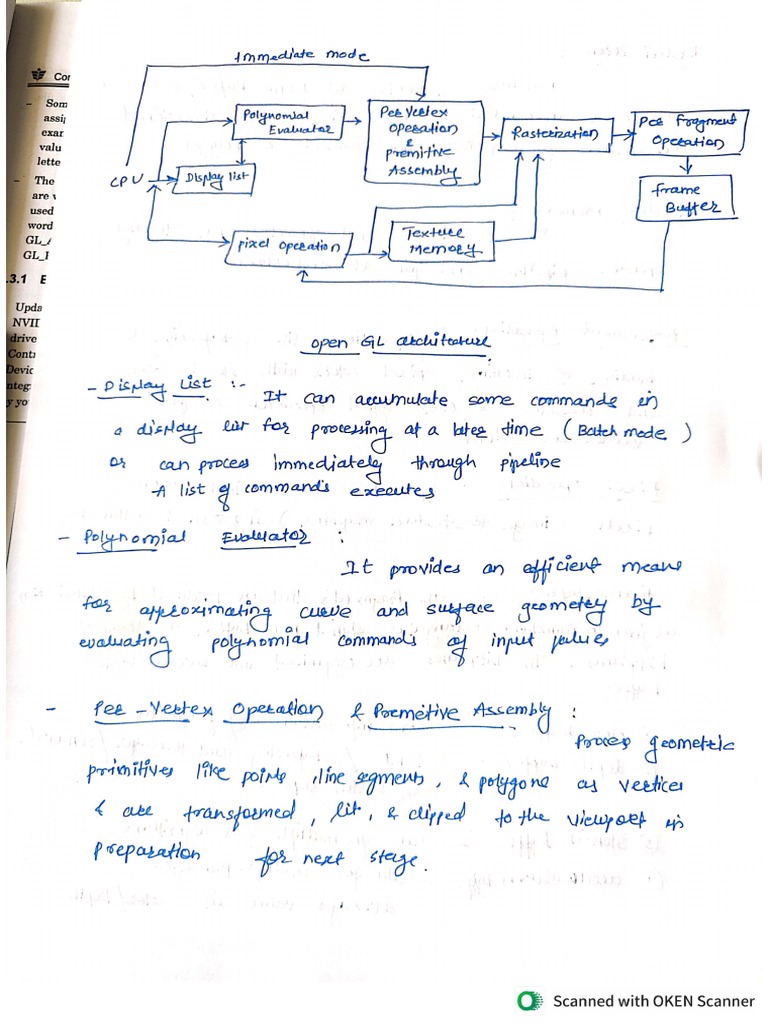 Immediate mode
Polynomial
Evaluator
Per Vertex
Operation
&
Premitive
Assembly
Rasterization
Per Fragment
Operation
CPU
Display list
frame
Buffer
pixel operation
Texture
Memory
Open GL architecture
- Display List :-
It can accumulate some commands in
a display list for processing at a later time (Batch mode)
or can process immediately through pipeline
A list of commands executes
- Polynomial Evaluator :
It provides an efficient means
for approximating curve and surface geometry by
evaluating polynomial commands of input values
- Per-Vertex Operation & Premetive Assembly :
Process geometric
primitives like points, line segments, & polygons as vertices
& are transformed, lit, & clipped to the viewport in
preparation for next stage.
Cor
- Som
assi
exar
valu
lette
- The
are
used
word
GL_
GL_
.3.1 E
Upda
NVII
drive
Conta
Devic
nteg
y yo
Scanned with OKEN Scanner